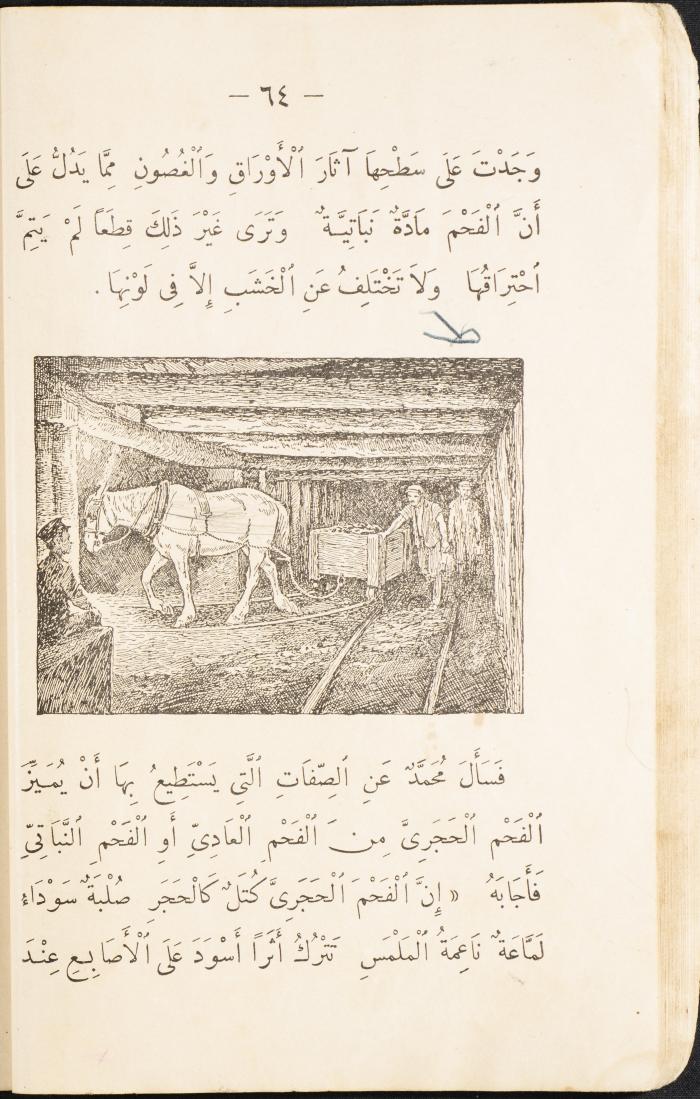 — ٦٤ —
وَجَدْتَ عَلَى سَطْحِهَا آثَارَ ٱلْأَوْرَاقِ وَٱلْغُصُونِ مِمَّا يَدُلُّ عَلَى
أَنَّ ٱلْفَحْمَ مَادَّةٌ نَبَاتِيَّةٌ وَتَرَى غَيْرَ ذَلِكَ قِطَعًا لَمْ يَتِمَّ
ٱحْتِرَاقُهَا وَلَا تَخْتَلِفُ عَنِ ٱلْخَشَبِ إِلاَّ فِى لَوْنِهَا .
فَسَأَلَ مُحَمَّدٌ عَنِ ٱلصِّفَاتِ ٱلَّتِى يَسْتَطِيعُ بِهَا أَنْ يُمَيِّزَ
ٱلْفَحْمَ ٱلْحَجَرِىَّ مِنَ ٱلْفَحْمِ ٱلْعَادِىِّ أَوِ ٱلْفَحْمِ ٱلنَّبَاتِىِّ
فَأَجَابَهُ « إِنَّ ٱلْفَحْمَ ٱلْحَجَرِىَّ كُتَلٌ كَالْحَجَرِ صُلْبَةٌ سَوْدَاءُ
لَمَّاعَةٌ نَاعِمَةُ ٱلْمَلْمَسِ تَتْرُكُ أَثَرًا أَسْوَدَ عَلَى ٱلْأَصَابِعِ عِنْدَ